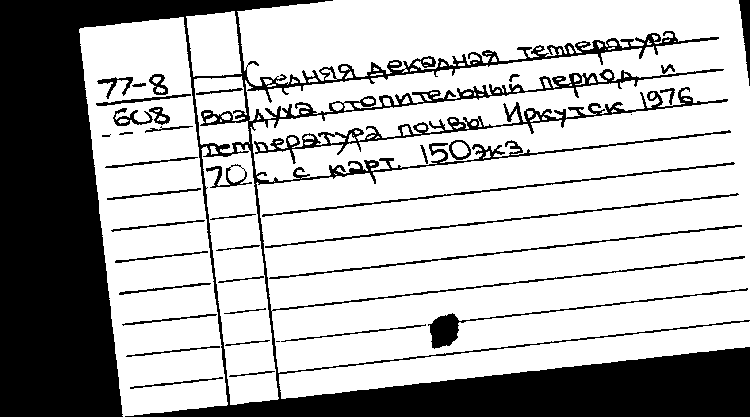 77-8
608
Средняя декадная температура
воздуха, отопительный период, и
температура почвы. Иркутск 1976.
70 с. с карт. 150 экз.